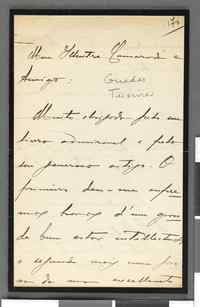 179
Meu Illustre Camarada e
Amigo:
Guedes
Teixeira
Muito obrigado pelo seu
livro admiravel e pelo
seu generoso artigo. O
primeiro deu-me
horas d'um goso
de bem estar intellectual,
o segundo mais uma
de sua excellente